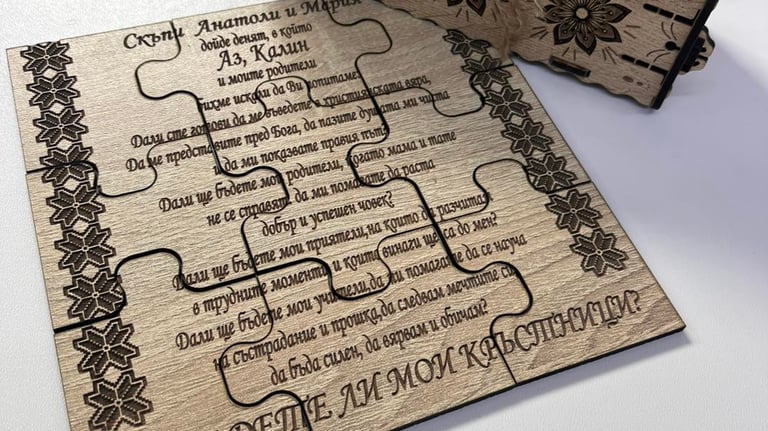 Скъпи Анатоли и Мария
дойде денят, в който
Аз, Калин
и моите родители
бихме искали да Ви попитаме:
Дали сте готови да ме въведете в християнската вяра,
Да ме представите пред Бога, да пазите душата ми чиста
и да ми показвате правия път?
Дали ще бъдете мои родители, когато мама и тате
не се справят, да ми помагате да раста
добър и успешен човек?
Дали ще бъдете мои приятели,на които да разчитам
в трудните моменти и които винаги ще са до мен?
Дали ще бъдете мои учители,да ми помагате да се науча
на състрадание и прошка,да следвам мечтите си,
да бъда силен, да вярвам и обичам?
ДЕТЕ ЛИ МОИ КРЪСТНИЦИ?